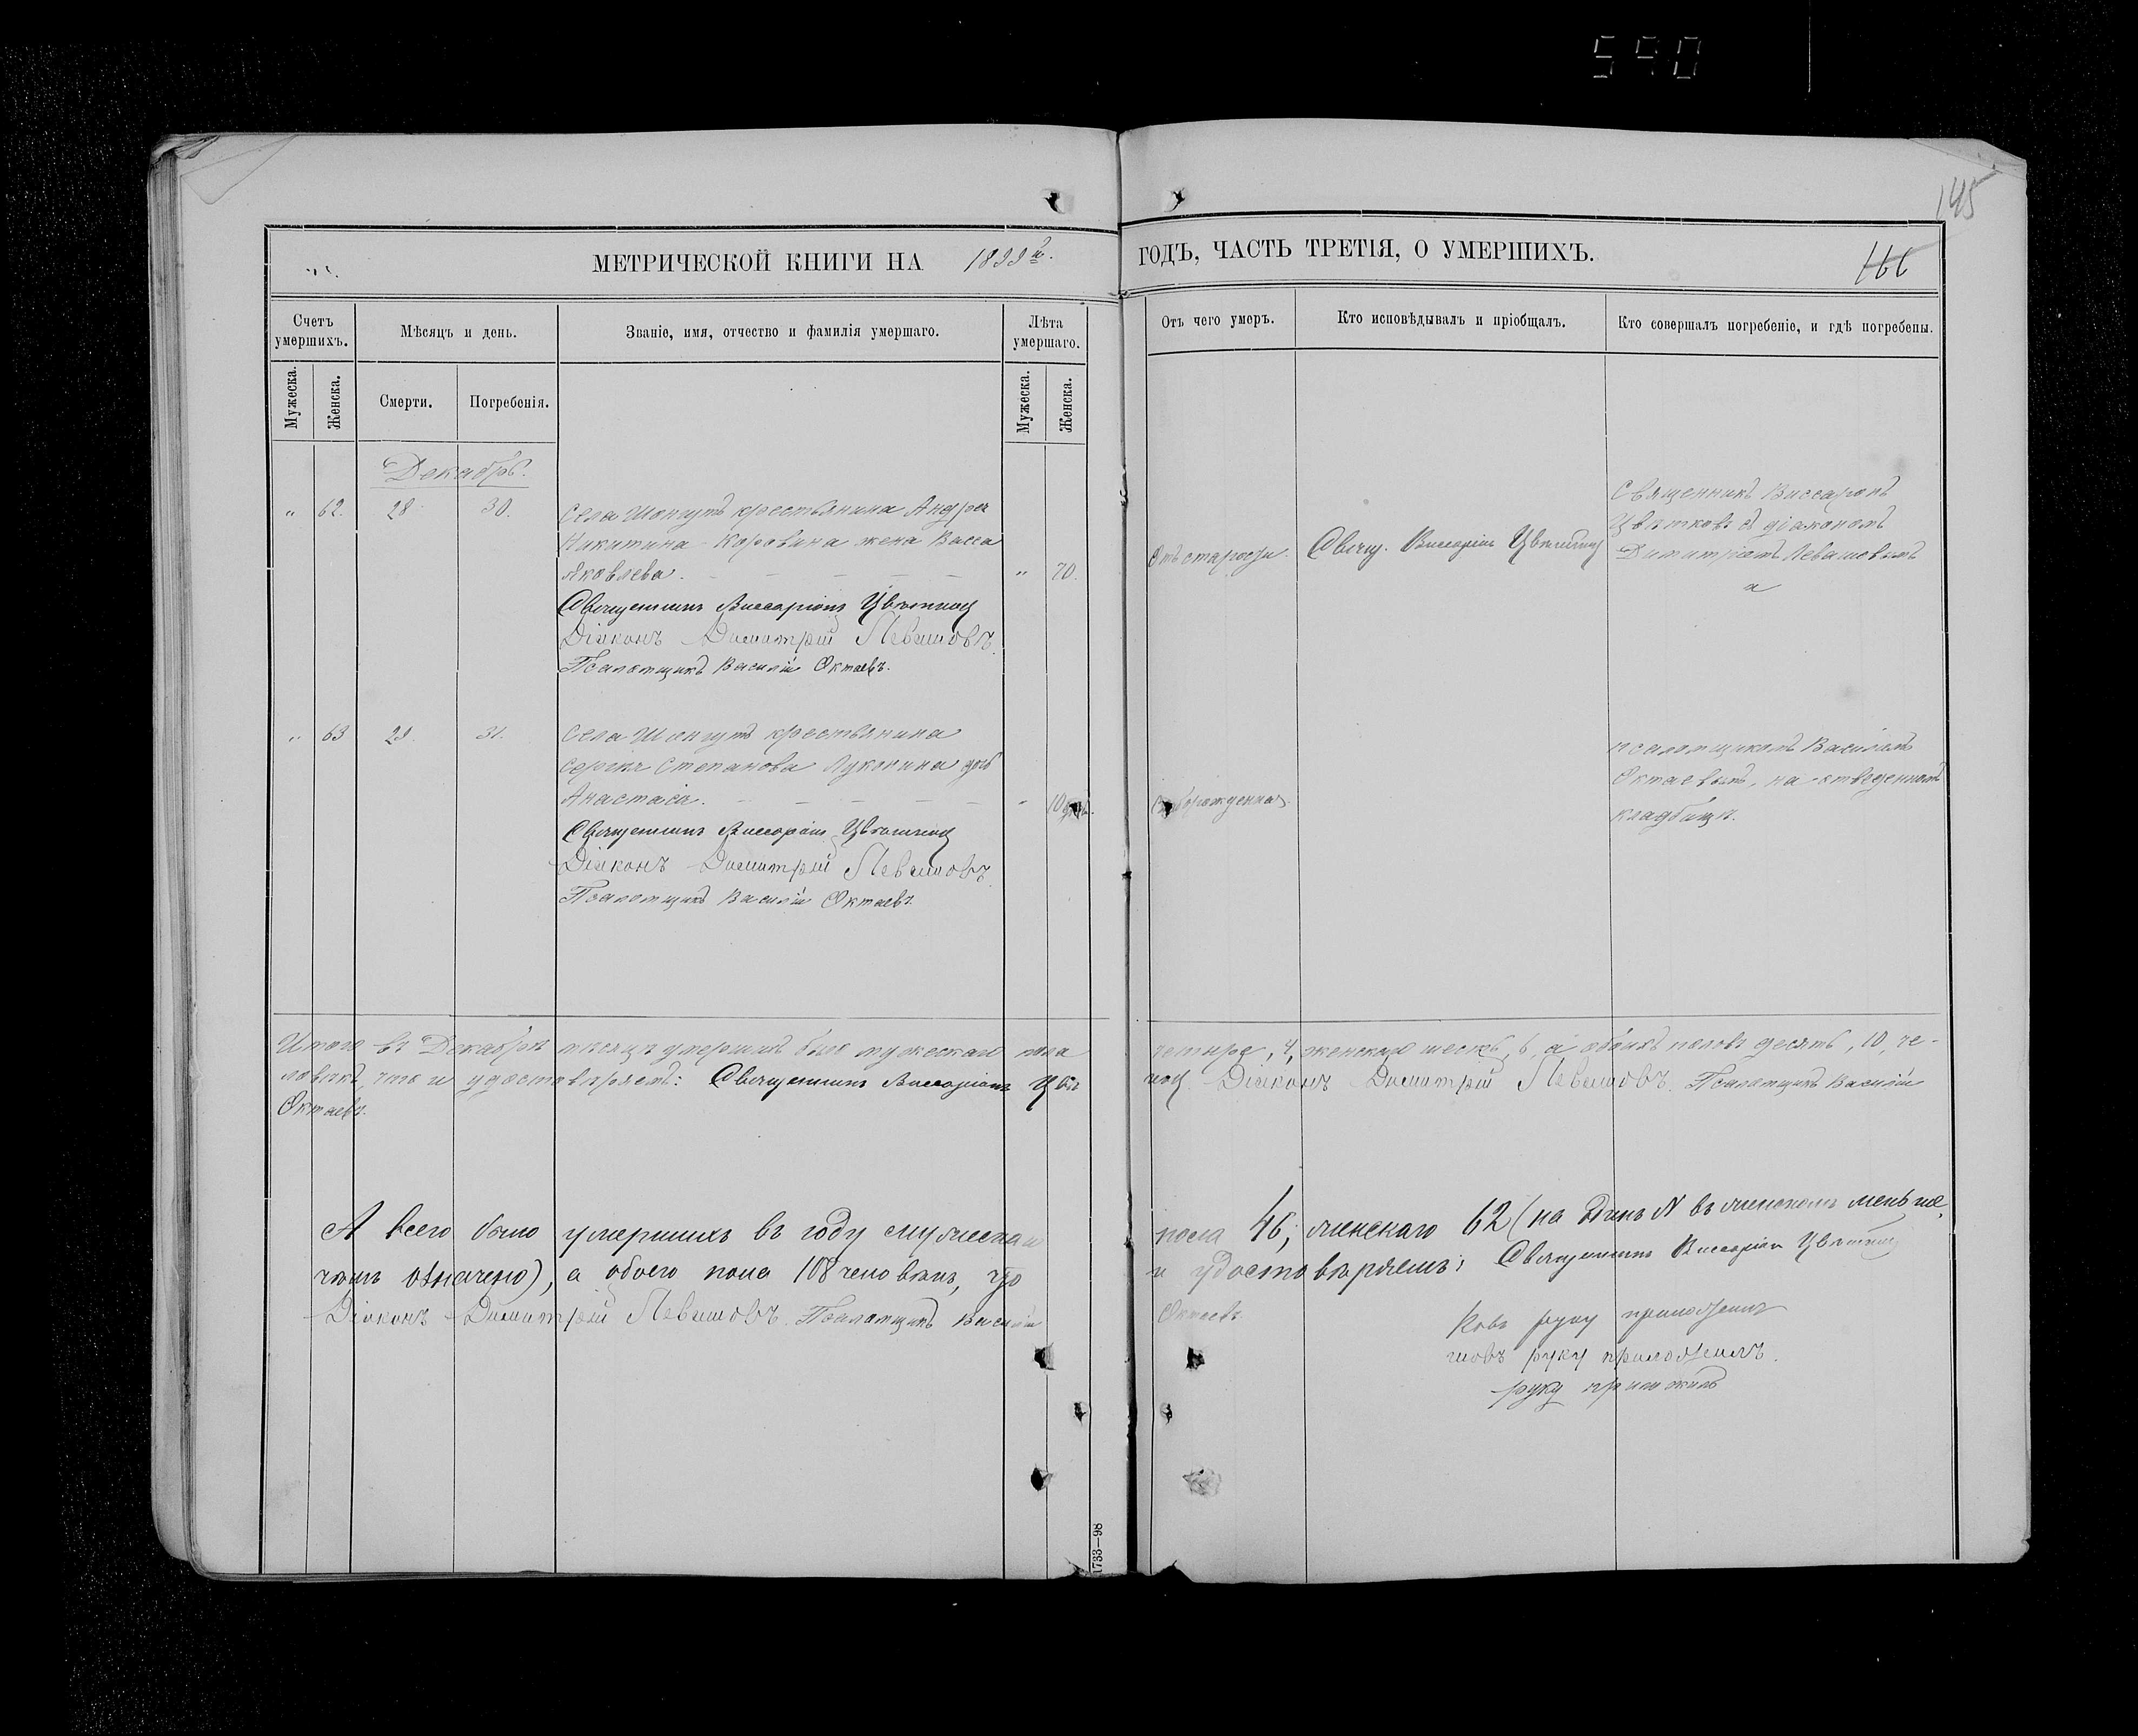 590
145
МЕТРИЧЕСКОЙ КНИГИ НА 1899 й.
ГОДЪ, ЧАСТЬ ТРЕТІЯ, О УМЕРШИХЪ.
166
Счетъ умершихъ.
Мѣсяцъ и день.
Званіе, имя, отчество и фамилія умершаго.
Лѣта умершаго.
Отъ чего умеръ.
Кто исповѣдывалъ и пріобщалъ.
Кто совершалъ погребеніе, и гдѣ погребены.
Мужеска.
Женска.
Смерти.
Погребенія.
Мужеска.
Женска.
Декабрь.
" 62. 28 30. Села Шонгутъ крестьянина Андрея
Никитина Коровина жена Васса
Яковлева. " 70.
Священникъ Виссаріонъ Цвѣтковъ
Діаконъ Димитрій Левашовъ.
Псаломщикъ Василій Октаевъ.
Отъ старости.
Свящ. Виссаріонъ Цвѣтковъ
Священникъ Виссаріонъ
Цвѣтковъ съ діакономъ
Димитріемъ Левашовымъ
и
" 63 29. 31. Села Шонгутъ крестьянина
Сергія Степанова Луконина дочь
Анастасія. " 10 дн.
Священникъ Виссаріонъ Цвѣтковъ
Діаконъ Димитрій Левашовъ.
Псаломщикъ Василій Октаевъ.
псаломщикомъ Василіемъ
Октаевымъ, на отведенномъ
кладбищѣ.
Итого въ Декабрѣ мѣсяцѣ умершихъ было мужескаго пола четыре, 4, женскаго шесть, 6, а обоихъ половъ десять, 10, че-
ловѣкъ, что и удостовѣряемъ: Священникъ Виссаріонъ Цвѣтковъ Діаконъ Димитрій Левашовъ. Псаломщикъ Василій
Октаевъ.
А всего было умершихъ въ году мужескаго пола 46, женскаго 62 (на одинъ № въ женскомъ меньше,
чѣмъ означено), а обоего пола 108 человѣкъ, что и удостовѣряемъ: Священникъ Виссаріонъ Цвѣтковъ
Діаконъ Димитрій Левашовъ. Псаломщикъ Василій Октаевъ
ковъ руку приложилъ
шовъ руку приложилъ.
руку приложилъ
1733—98